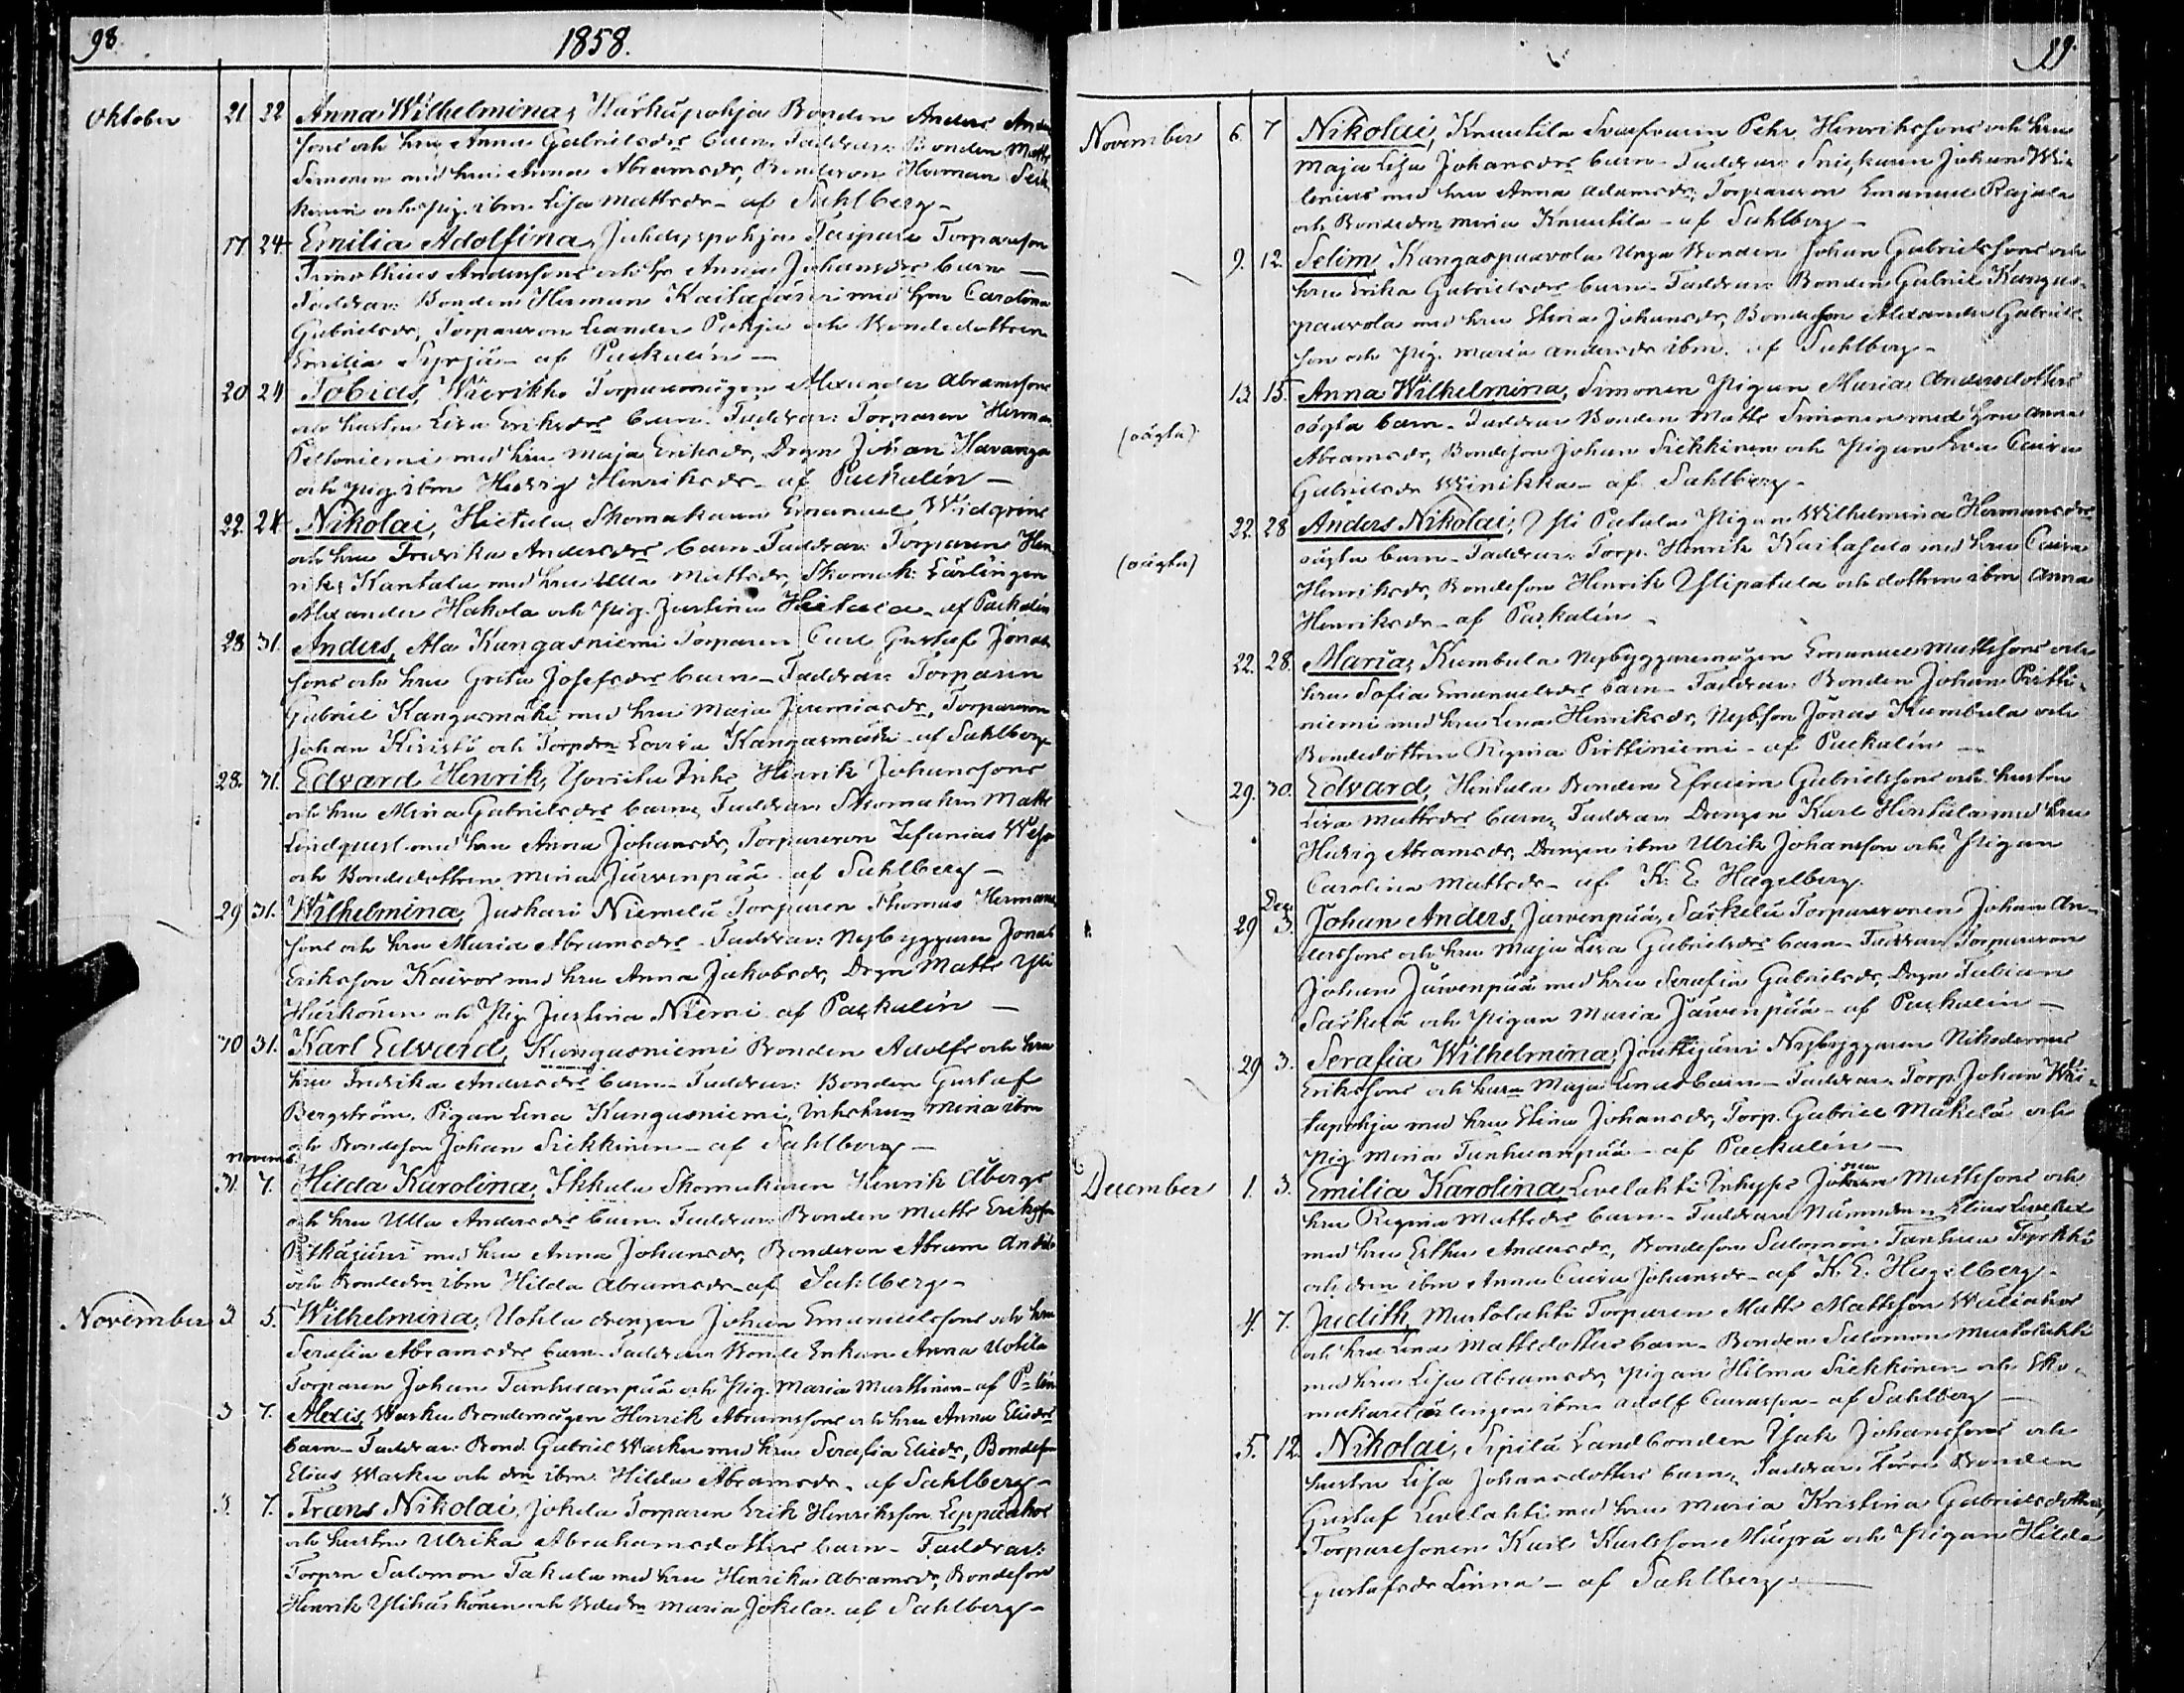 98. 1858.
Oktober 21 22 Anna Wilhelmina, Härkäpohja Bonden Anders Anders
sons och hru Anna Gabrielsdrs barn. Faddrar: Bonden Matts
Simonen med hru Anna Abramsdr, Bondeson Herman Siek
kinen och Pig. ibm Lisa Mattsdr - af Sahlberg -
17. 24. Emilia Adolfina, Torpareson
Timothius Anderssons och h. Anna Johansdrs barn —
Faddrar: Bonden Herman Kaitajärvi med hru Carolina
Gabrielsdr, Torpareson Leander Pohja och Bondedottren
Emilia Syrjä - af Packalén —
20 24 Tobias, Torparemågen Alexander Abramssons
och hustru Lisa Eriksdrs barn. Faddrar: Torparen Herman
Peltoniemi med hru Maja Eriksdr, Drgn Johan Havanga
och Pig. ibm Hedvig Henriksdr - af Packalén —
22. 24 Nikolai, Hietala Skomakaren Emanuel Widgréns
och hru Fredrika Andersdrs barn. Faddrar: Torparen Hen
rik Kantala med hru Ulla Mattsdr, Skomak: Lärlingen
Alexander Hakola och Pig. Justina Hietala - af Packalén
23 31. Anders, Ala Kangasniemi Torparen Carl Gustaf Jonas
sons och hru Greta Josefsdrs barn - Faddrar: Torparen
Gabriel Kangasmäki med hru Maja Jeremiasdr, Torpareson
Johan Kivistö och Torpdrn Lovisa Kangasmäki - af Sahlberg
28. 31. Edvard Henrik, Inhs Henrik Johanssons
och hru Mina Gabrielsdrs barn, Faddrar: Skomakrn Matts
Lindquist med hru Anna Johansdr, Torpareson Zefanias
och Bondedottren Mina Järvenpää af Sahlberg —
29 31. Wilhelmina, Juskari Niemelä Torparen Thomas Hermans
sons och hru Maria Abramsdrs - Faddrar: Nybyggaren Jonas
Eriksson Kaivos med hru Anna Jakobsdr, Drgn Matts Yli
Härkönen och Pig. Justina Niemi af Packalén —
30 31. Karl Edvard, Kangasniemi Bonden Adolfs och hru
hru Fredrika Andersdrs barn - Faddrar: Bonden Gustaf
Bergström, Pigan Lena Kangasniemi, Inhshrun Mina ibm
och Bondeson Johan Siekkinen - af Sahlberg —
Novemb.
31. 7. Hilda Karolina, Ikkala Skomakaren Henrik Åbergs
och hru Ulla Andersdrs barn. Faddrar: Bonden Matts Eriksson
Pitkäjärvi med hru Anna Johansdr, Bondeson Abram Anttila
och Bondedrn ibm Hilda Abramsdr - af Sahlberg -
November 3. 5. Wilhelmina, Uotila drengen Johan Emanuelssons och hru
Serafia Abramsdrs barn. Faddrar: Bonde Enkan Anna Uotila
Torparen Johan Tanhuanpää och Pig. Maria Marttinen - af P-lén
3 7. Alexis, Warku Bondemågen Henrik Abramssons och hru Anna Eliedrs
barn - Faddrar: Bond. Gabriel Warku med hru Serafia Eliedr, Bondeson
Elias Warku och drn ibm Hilda Abramsdr - af Sahlberg -
3. 7. Frans Nikolai, Jokela Torparen Erik Henriksson Leppäahos
och hustru Ulrika Abrahamsdotters barn - Faddrar:
Torprn Salomon Takala med hru Henrika Abramsdr, Bondeson
Henrik Ylihärkönen och Bdedrn Maria Jokela af Sahlberg -
99.
November 6. 7 Nikolai, Knuutila Svarfvaren Pehr Henrikssons och hru
Maja Lisa Johansdrs barn - Faddrar: Snickaren Johan Wi-
lenius med hru Anna Adamsdr, Torpareson Emanuel Rajala
och Bondedrn Mina Knuutila - af Sahlberg -
9. 12. Selim, Kangaspaavola Unga Bonden Johan Gabrielssons och
hru Erika Gabrielsdrs barn - Faddrar: Bonden Gabriel Kangas-
paavola med hru Stina Johansdr, Bondeson Alexander Gabriel-
son och Pig. Maria Andersdr ibm. af Sahlberg -
(oägta) 13. 15. Anna Wilhelmina, Simonen Pigan Maria Andersdotters
oägta barn - Faddrar: Bonden Matts Simonen med hru Anna
Abramsdr, Bondeson Johan Siekkinen och Pigan Eva Caisa
Gabrielsdr Winikka - af Sahlberg -
(oägta) 22. 28 Anders Nikolai, Yli Patala Pigan Wilhelmina Hermansdrs
oägta barn - Faddrar: Torp. Henrik Kaitasalo med hru Caisa
Henriksdr, Bondeson Henrik Ylipatala och dottren ibm Anna
Henriksdr - af Packalén -
22. 28. Maria, Kumbula Nybyggaremågen Emanuel Mattssons och
hru Sofia Emanuelsdrs barn - Faddrar: Bonden Johan Pirtti-
niemi med hru Lena Henriksdr, Nybson Jonas Kumbula och
Bondedottren Regina Pirttiniemi - af Packalén —
29. 30. Edvard, Hintala Bonden Efraim Gabrielssons och hustru
Lisa Mattsdrs barn, Faddrar: Drengen Karl Hintala med hru
Hedvig Abramsdr, Drengen ibm Ulrik Johansson och Pigan
Carolina Mattsdr - af K. E. Hagelberg.
Dec.
29 3. Johan Anders, Järvenpää, Särkelä Torparesonen Johan An-
derssons och hru Maja Lisa Gabrielsdrs barn - Faddrar: Torpareson
Johan Järvenpää med hru Serafia Gabrielsdr, Drgn Fabian
Särkelä och Pigan Maria Järvenpää - af Packalén —
29 3. Serafia Wilhelmina, Jouttijärvi Nybyggaren Nikodemus
Erikssons och hru Maja Lenas barn - Faddrar: Torp. Johan Wii-
tapohja med hru Stina Johansdr, Torp. Gabriel Mäkelä och
Pig. Mina Tanhuanpää - af Packalén —
December 1. 3. Emilia Karolina, Levelahti Inhyses Johan Mattssons och
hru Regina Mattsdrs barn - Faddrar: Nämndmn Elias Levelax
med hru Esther Andersdr, Bondeson Salomon Tanhua Tyrkkö
och drn ibm Anna Caisa Johansdr - af K. E. Hagelberg -
4. 7. Judith, Mustolahti Torparen Matts Mattsson Waliahos
och hru Lena Mattsdotters barn - Bonden Salomon Mustolahti
med hru Lisa Abramsdr, Pigan Hilma Siekkinen och Sko-
makarelärlingen ibm Adolf - af Sahlberg —
5. 12. Nikolai, Sipilä Landbonden Isak Johanssons och
hustru Lisa Johansdotters barn, Faddrar: Bonden
Gustaf Levelahti med hru Maria Kristina Gabrielsdotter,
Torparesonen Karl Karlsson och Pigan Hilda
Gustafsdr Linna - af Sahlberg —